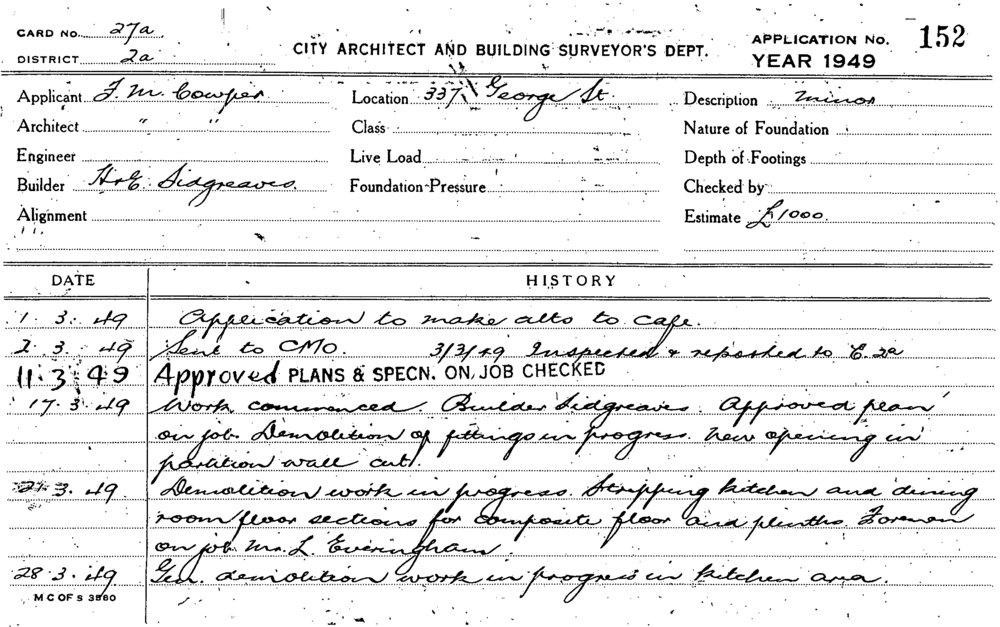 CARD NO. 27a
DISTRICT 2a
CITY ARCHITECT AND BUILDING SURVEYOR'S DEPT.
APPLICATION No. 152
YEAR 1949
Applicant F. M. Cowper
Location 337 George St
Description minor
Architect " "
Class
Nature of Foundation
Engineer
Live Load
Depth of Footings
Builder H & E. Sidgreaves.
Foundation Pressure
Checked by
Alignment
Estimate £1000
DATE HISTORY
1. 3. 49 Application to make alts to cafe.
2. 3. 49 Sent to CMO. 3/3/49 Inspected & reported to E. 2a
11. 3. 49 Approved PLANS & SPECN. ON JOB CHECKED
17. 3. 49 Work commenced. Builder Sidgreaves. Approved plan
on job. Demolition of fittings in progress. New opening in
partition wall cut.
3. 49. Demolition work in progress. Stripping kitchen and dining
room floor sections for composite floor and plinths. Foreman
on job Mr. L. Everingham.
28. 3. 49. Gen. demolition work in progress in kitchen area.
M C OF S 3880